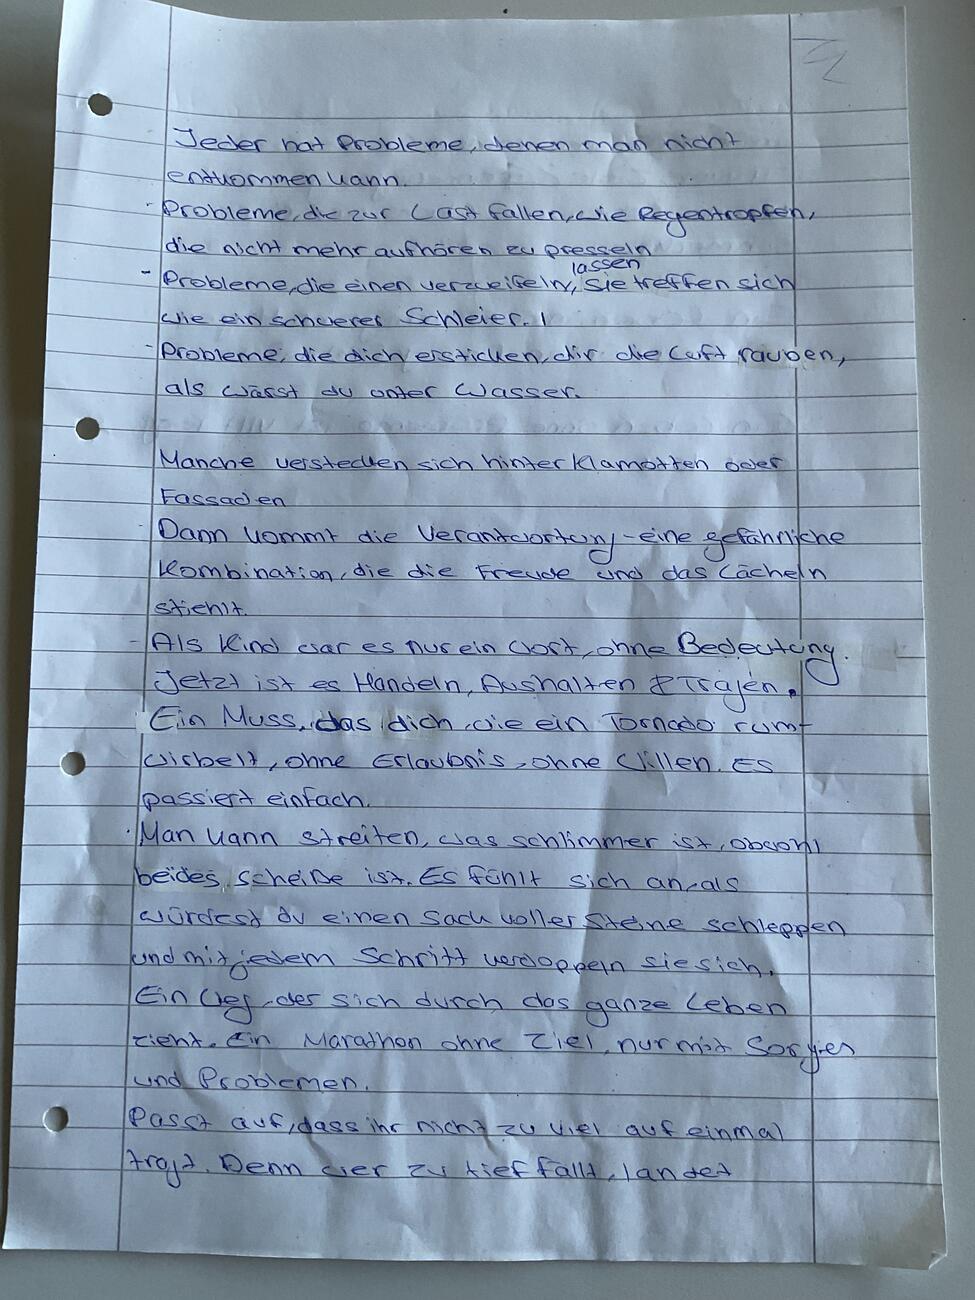 Jeder hat Probleme, denen man nicht
entkommen kann.
- Probleme, die zur Last fallen, wie Regentropfen,
die nicht mehr aufhören zu presseln
lassen
- Probleme, die einen verzweifeln, sie treffen sich
wie ein schwerer Schleier.
- Probleme, die dich ersticken, dir die Luft rauben,
als wässt du unter Wasser.
Manche verstecken sich hinter Klamotten oder
Fassaden
Dann kommt die Verantwortung - eine gefährliche
Kombination, die die Freude und das Lächeln
stiehlt.
- Als Kind war es nur ein Wort, ohne Bedeutung.
Jetzt ist es Handeln, Aushalten & Tragen.
Ein Muss, das dich wie ein Tornado rum-
wirbelt, ohne Erlaubnis, ohne Willen. Es
passiert einfach.
· Man kann streiten, was schlimmer ist, obwohl
beides scheiße ist. Es fühlt sich an, als
würdest du einen Sack voller Steine schleppen
und mit jedem Schritt verdoppeln sie sich.
Ein Weg, der sich durch das ganze Leben
zieht. Ein Marathon ohne Ziel, nur mit Sorgen
und Problemen.
Passt auf, dass ihr nicht zu viel auf einmal
tragt. Denn wer zu tief fällt, landet